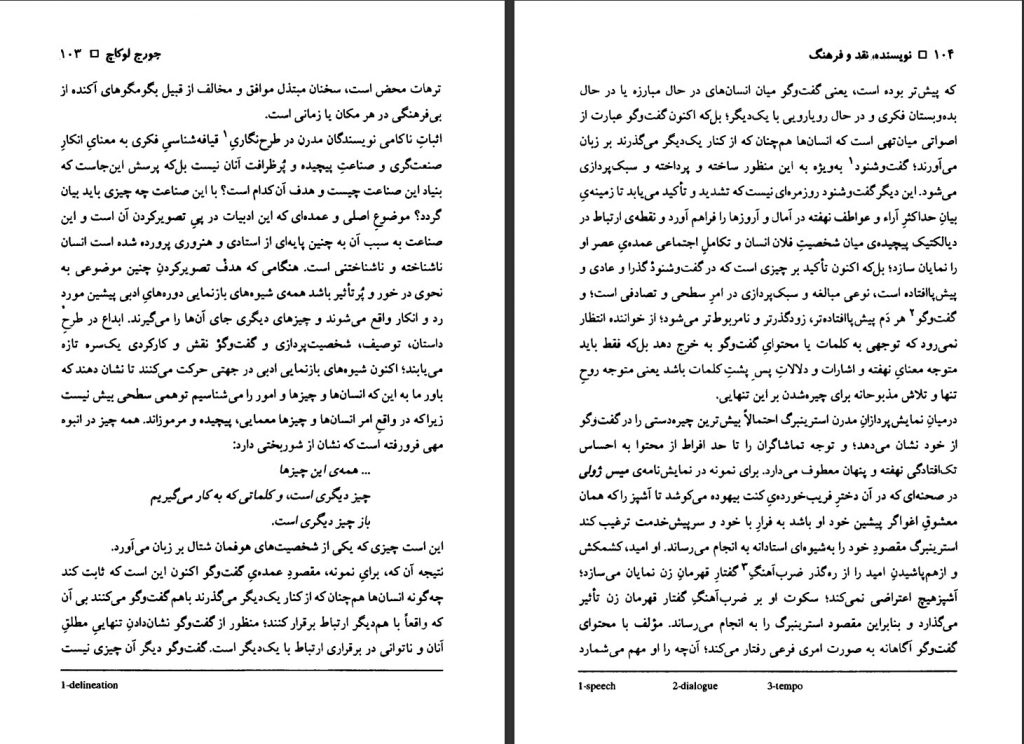 جورج لوکاچ □ ۱۰۳
ترهات محض است، سخنان مبتذل موافق و مخالف از قبیل بگومگوهای آکنده از
بی‌فرهنگی در هر مکان یا زمانی است.
اثباتِ ناکامی نویسندگان مدرن در طرح‌نگاریِ۱ قیافه‌شناسیِ فکری به معنایِ انکارِ
صنعت‌گری و صناعتِ پیچیده و پُرظرافت آنان نیست بل‌که پرسش این‌جاست که
بنیاد این صناعت چیست و هدف آن‌کدام است؟ با این صناعت چه چیزی باید بیان
گردد؟ موضوعِ اصلی و عمده‌ای که این ادبیات در پیِ تصویرکردن آن است و این
صناعت به سبب آن به چنین پایه‌ای از استادی و هنروری پرورده شده است انسان
ناشناخته و ناشناختنی است. هنگامی که هدفْ تصویرکردنِ چنین موضوعی به
نحوی در خور و پُرتأثیر باشد همه‌ی شیوه‌های بازنمایی دوره‌هایِ ادبی پیشین مورد
رد و انکار واقع می‌شوند و چیزهای دیگری جای آن‌ها را می‌گیرند. ابداع در طرحِ
داستان، توصیف، شخصیت‌پردازی و گفت‌وگوْ نقش و کارکردی یک‌سره تازه
می‌یابند؛ اکنون شیوه‌های بازنمایی ادبی در جهتی حرکت می‌کنند تا نشان دهند که
باور ما به این‌که انسان‌ها و چیزها و امور را می‌شناسیم توهمی سطحی بیش نیست
زیراکه در واقعِ امر انسان‌ها و چیزها معمایی، پیچیده و مرموزاند. همه چیز در انبوه
مهی فرورفته است که نشان از شوربختی دارد:
... همه‌ی این چیزها
چیز دیگری است، و کلماتی که به کار می‌گیریم
باز چیز دیگری است.
این است چیزی که یکی از شخصیت‌های هوفمان شتال بر زبان می‌آورد.
نتیجه آن که، برایِ نمونه، مقصودِ عمده‌یِ گفت‌وگو اکنون این است که ثابت کند
چه‌گونه انسان‌ها هم‌چنان که از کنار یک‌دیگر می‌گذرند باهم گفت‌وگو می‌کنند بی آن
که واقعاً با هم‌دیگر ارتباط برقرار کنند؛ منظور از گفت‌وگو نشان‌دادنِ تنهاییِ مطلقِ
آنان و ناتوانی در برقراری ارتباط با یک‌دیگر است. گفت‌وگو دیگر آن چیزی نیست
1-delineation
۱۰۴ □ نویسنده، نقد و فرهنگ
که پیش‌تر بوده است، یعنی گفت‌وگو میان انسان‌های در حال مبارزه یا در حال
بده‌وبستان فکری و در حال رویارویی با یک‌دیگر؛ بل‌که اکنون گفت‌وگو عبارت از
اصواتی میان‌تهی است که انسان‌ها هم‌چنان که از کنار یک‌دیگر می‌گذرند بر زبان
می‌آورند؛ گفت‌وشنود۱ به‌ویژه به این منظور ساخته و پرداخته و سبک‌پردازی
می‌شود. این دیگر گفت‌وشنود روزمره‌ای نیست که تشدید و تأکید می‌یابد تا زمینه‌یِ
بیانِ حداکثرِ آراء و عواطف نهفته در آمال و آروزها را فراهم آورد و نقطه‌ی ارتباط در
دیالکتیک پیچیده‌ی میان شخصیتِ فلان انسان و تکاملِ اجتماعی عمده‌یِ عصر او
را نمایان سازد؛ بل‌که اکنون تأکید بر چیزی است که در گفت‌وشنودْ گذرا و عادی و
پیش‌پاافتاده است، نوعی مبالغه و سبک‌پردازی در امرِ سطحی و تصادفی است؛ و
گفت‌وگو۲ هر دَم پیش‌پاافتاده‌تر، زودگذرتر و نامربوط‌تر می‌شود؛ از خواننده انتظار
نمی‌رود که توجهی به کلمات یا محتوایِ گفت‌وگو به خرج دهد بل‌که فقط باید
متوجه معنایِ نهفته و اشارات و دلالاتِ پسِ پشتِ کلمات باشد یعنی متوجه روحِ
تنها و تلاش مذبوحانه برای چیره‌شدن بر این تنهایی.
درمیانِ نمایش‌پردازانِ مدرن استرینبرگ احتمالاً بیش‌ترین چیره‌دستی را در گفت‌وگو
از خود نشان می‌دهد؛ و توجه تماشاگران را تا حد افراط از محتوا به احساس
تک‌افتادگی نهفته و پنهان معطوف می‌دارد. برای نمونه در نمایش‌نامه‌ی میس ژولی
در صحنه‌ای که در آن دخترِ فریب‌خورده‌یِ کنت بیهوده می‌کوشد تا آشپز را که همان
معشوقِ اغواگر پیشین خود او باشد به فرارِ با خود و سرپیش‌خدمت ترغیب کند
استرینبرگ مقصودِ خود را به‌شیوه‌ای استادانه به انجام می‌رساند. او امید، کشمکش
و ازهم‌پاشیدنِ امید را از ره‌گذر ضرب‌آهنگِ۳ گفتارِ قهرمانِ زن نمایان می‌سازد؛
آشپزهیچ اعتراضی نمی‌کند؛ سکوت او بر ضرب‌آهنگِ گفتار قهرمان زن تأثیر
می‌گذارد و بنابراین مقصود استرینبرگ را به انجام می‌رساند. مؤلف با محتوای
گفت‌وگو آگاهانه به صورت امری فرعی رفتار می‌کند؛ آن‌چه را او مهم می‌شمارد
1-speech 2-dialogue 3-tempo